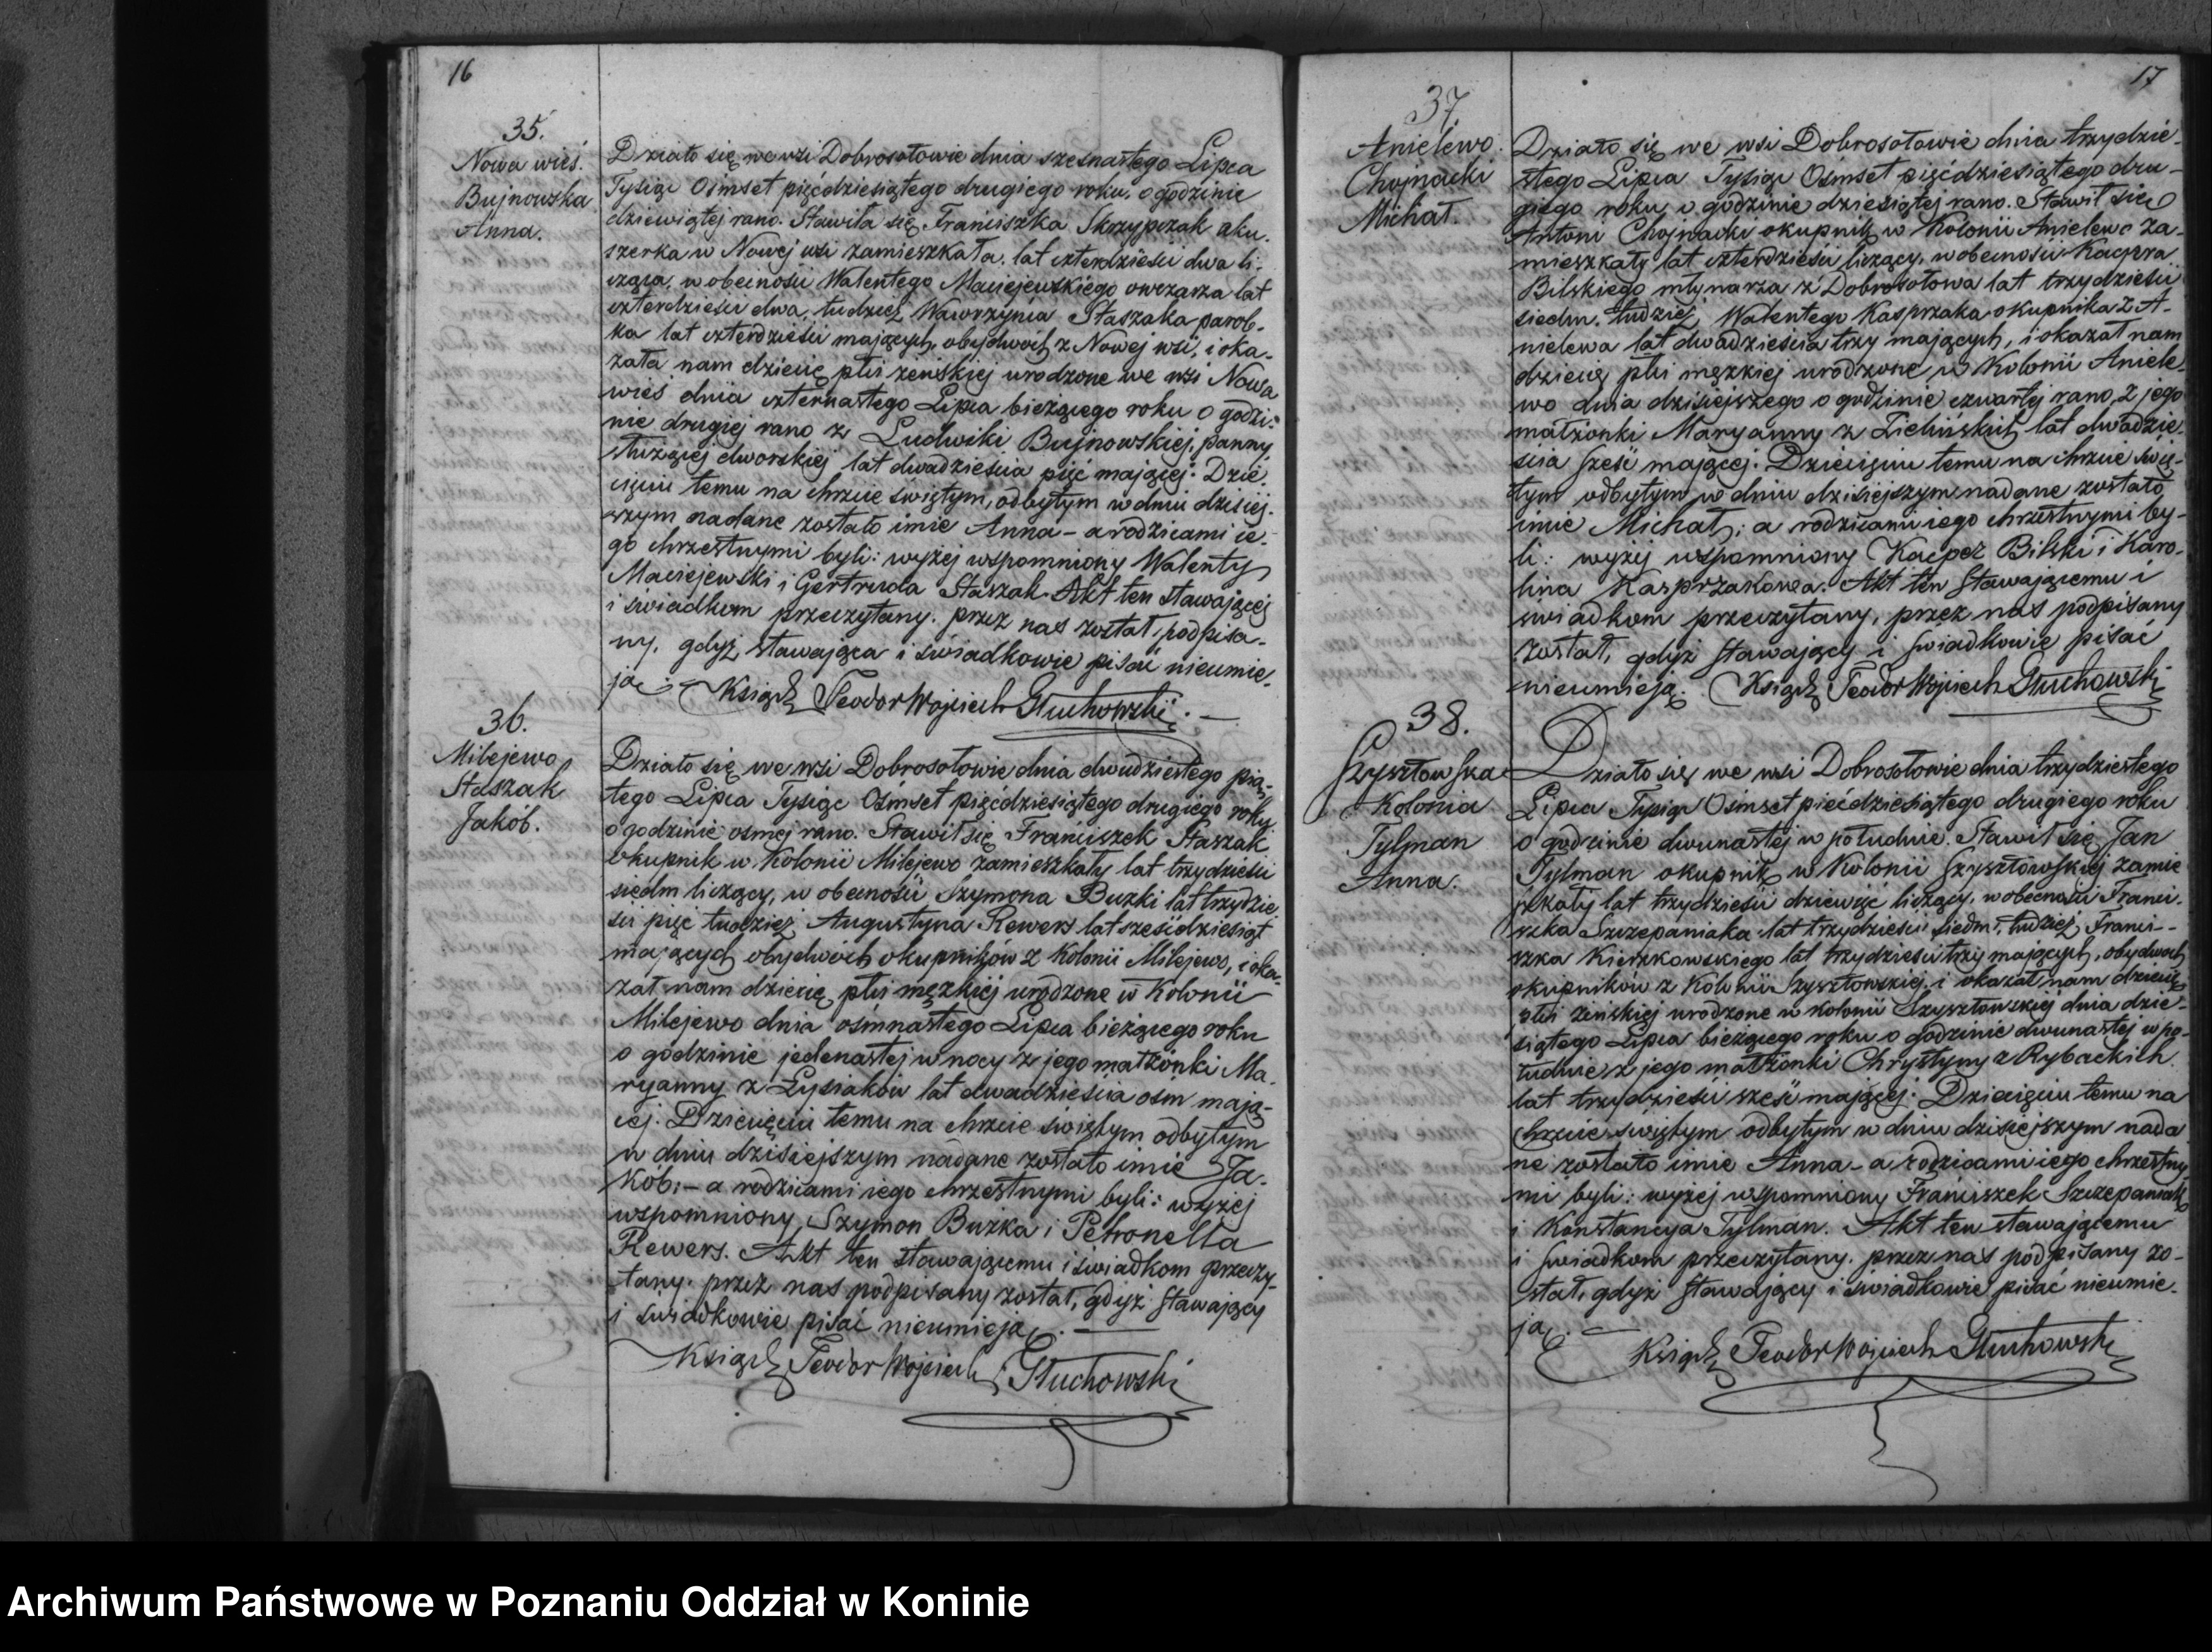 16
35.
Nowa wieś.
Bujnowska
Anna.
Działo się we wsi Dobrosołowie dnia szesnastego Lipca
Tysiąc Ośmset pięćdziesiątego drugiego roku, o godzinie
dziewiątej rano. Stawiła się Franciszka Skrzypczak aku-
szerka w Nowej wsi zamieszkała, lat czterdzieści dwa li-
cząca, w obecności Walentego Maciejewskiego owczarza lat
czterdzieści dwa, tudzież Wawrzyńca Staszaka parob-
ka lat czterdzieści mających, obydwóch z Nowej wsi, i oka-
zała nam dziecię płci żeńskiej urodzone we wsi Nowa
wieś dnia czternastego Lipca bieżącego roku o godzi-
nie drugiej rano z Ludwiki Bujnowskiej, panny
służącej dworskiej lat dwadzieścia pięć mającej. Dzie-
cięciu temu na chrzcie świętym, odbytym w dniu dzisiej-
szym nadane zostało imie Anna – a rodzicami ie-
go chrzestnymi byli: wyżej wspomniony Walenty
Maciejewski i Gertruda Staszak. Akt ten stawającej
i świadkom przeczytany, przez nas został podpisa-
ny, gdyż stawająca i świadkowie pisać nieumie-
ją. Ksiądz Teodor Wojciech Głuchowski. —
36.
Milejewo
Staszak
Jakób.
Działo się we wsi Dobrosołowie dnia dwudziestego pią-
tego Lipca Tysiąc Ośmset pięćdziesiątego drugiego roku
o godzinie osmej rano. Stawił się Franciszek Staszak
okupnik w Kolonii Milejewo zamieszkały lat trzydzieści
siedm liczący, w obecności Szymona Buzki lat trzydzie-
ści pięć tudzież Augustyna Rewers lat sześćdziesiąt
mających obydwóch okupników z Kolonii Milejewo, i oka-
zał nam dziecię płci męzkiej urodzone w Kolonii
Milejewo dnia ośmnastego Lipca bieżącego roku
o godzinie jedenastej w nocy z jego małżonki Ma-
ryanny z Łysiaków lat dwadzieścia ośm mają-
cej. Dziecięciu temu na chrzcie świętym odbytym
w dniu dzisiejszym nadane zostało imie Ja-
kób: – a rodzicami iego chrzestnymi byli: wyżej
wspomniony Szymon Buzka i Petronella
Rewers. Akt ten stawającemu i świadkom przeczy-
tany, przez nas podpisany został, gdyż stawający
i świadkowie pisać nieumieją. —
Ksiądz Teodor Wojciech Głuchowski
17
37.
Anielewo.
Chojnacki
Michał.
Działo się we wsi Dobrosołowie dnia trzydzie-
stego Lipca Tysiąc Ośmset pięćdziesiątego dru-
giego roku o godzinie dziesiątej rano. Stawił się
Antoni Chojnacki okupnik w Kolonii Anielewo za-
mieszkały lat czterdzieści liczący, w obecności Kacpra
Bilskiego młynarza z Dobrosołowa lat trzydzieści
siedm, tudzież Walentego Kasprzaka okupnika z A-
nielewa lat dwadzieścia trzy mających, i okazał nam
dziecię płci męzkiej urodzone w Kolonii Aniele-
wo dnia dzisiejszego o godzinie czwartej rano, z jego
małżonki Maryanny z Zielińskich lat dwadzie-
ścia sześć mającej. Dziecięciu temu na chrzcie świę-
tym odbytym w dniu dzisiejszym nadane zostało
imie Michał; a rodzicami iego chrzestnymi by-
li: wyżej wspomniony Kacper Bilski i Karo-
lina Kasprzakowa. Akt ten stawającemu i
świadkom przeczytany, przez nas podpisany
został, gdyż stawający i świadkowie pisać
nieumieją. Ksiądz Teodor Wojciech Głuchowski
38.
Szysztowska
Kolonia
Tylman
Anna.
Działo się we wsi Dobrosołowie dnia trzydziestego
Lipca Tysiąc Ośmset pięćdziesiątego drugiego roku
o godzinie dwunastej w południe. Stawił się Jan
Tylman okupnik w Kolonii Szysztowskiej zamie-
szkały lat trzydzieści dziewięć liczący, w obecności Franci-
szka Szczepaniaka lat trzydzieści siedm, tudzież Franci-
szka Kierzkowskiego lat trzydzieści trzy mających, obydwóch
okupników z Kolonii Szysztowskiej, i okazał nam dziecię
płci żeńskiej urodzone w Kolonii Szysztowskiej dnia dzie-
siątego Lipca bieżącego roku o godzinie dwunastej w po-
łudnie z jego małżonki Chrystyny z Rybackich
lat trzydzieści sześć mającej. Dziecięciu temu na
chrzcie świętym odbytym w dniu dzisiejszym nada
ne zostało imie Anna – a rodzicami iego chrzestny
mi byli: wyżej wspomniony Franciszek Szczepaniak
i Konstancya Tylman. Akt ten stawającemu
i świadkom przeczytany, przez nas podpisany zo-
stał, gdyż stawający i świadkowie pisać nieumie-
ją. —
Ksiądz Teodor Wojciech Głuchowski
Archiwum Państwowe w Poznaniu Oddział w Koninie